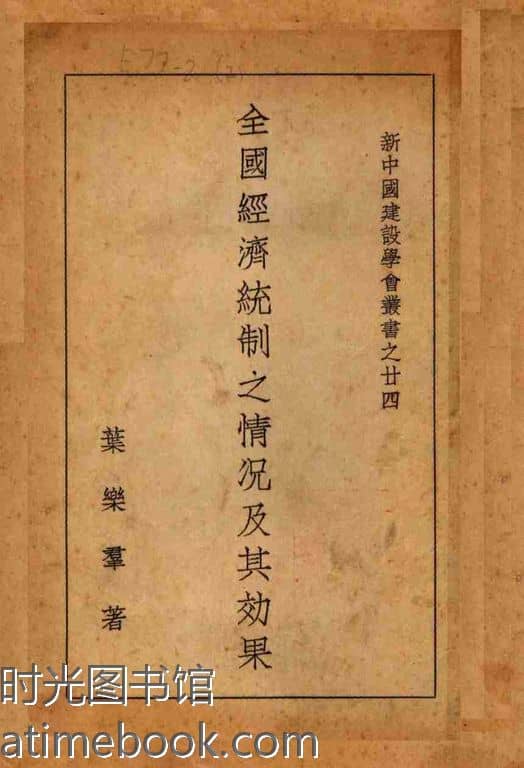 新中國建設學會叢書之廿四
全國經濟統制之情况及其効果
葉樂羣著
时光图书馆
atimebook.com